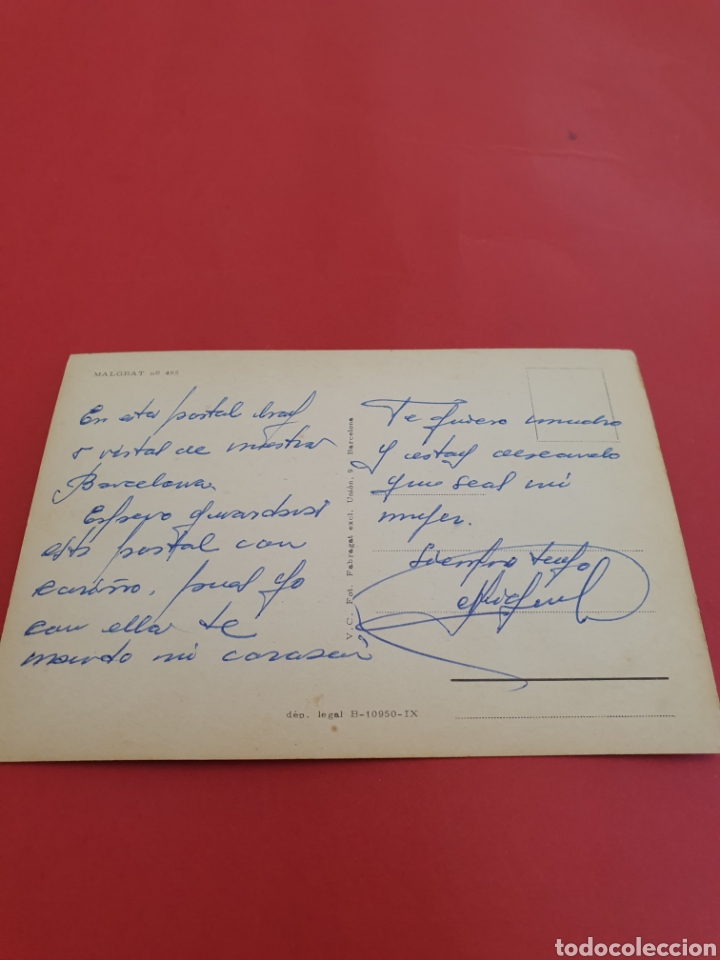 MALGRAT nº 465
En esta postal hay
5 vistas de nuestra
Barcelona.
Espero guardarás
esta postal con
cariño, pues yo
con ella te
mando mi corazón
V. C. Fot. Fabregat excl. Unión, 9 Barcelona
Te quiero mucho
y estoy deseando
que seas mi
mujer.
Siempre tuyo
Miguel
dép. legal B-10950-IX
todocoleccion